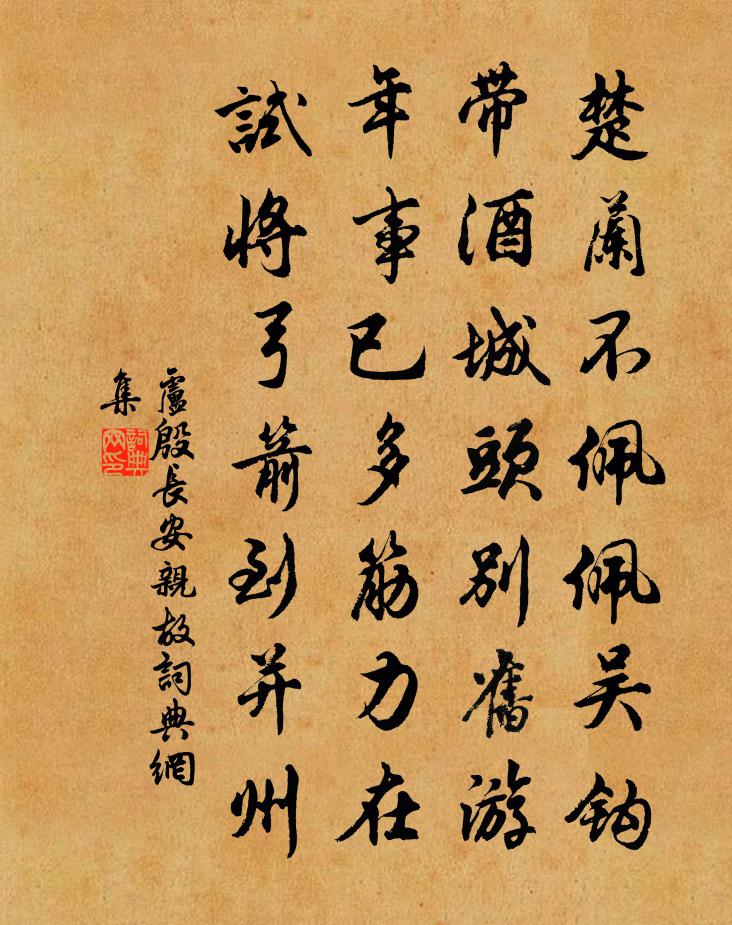 楚蘭不佩佩吴鈎
带酒城頭别舊游
年事已多筋力在
試將弓箭到并州
盧殷長安親故詞典網
集
詞典
网印